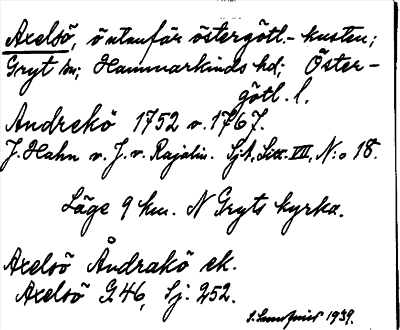 Axelsö, ö utanför östergötl.- kusten;
Gryt sn; Hammarkinds hd; Öster-
götl. l.
Andrekö 1752 o. 1767.
J. Hahn o. J. v. Rajalin. Sjk. Sect. VII, N:o 18.
Läge 9 km. N Gryts kyrka.
Axelsö Åndrakö ek.
Axelsö G 46, Sj. 252.
1939.